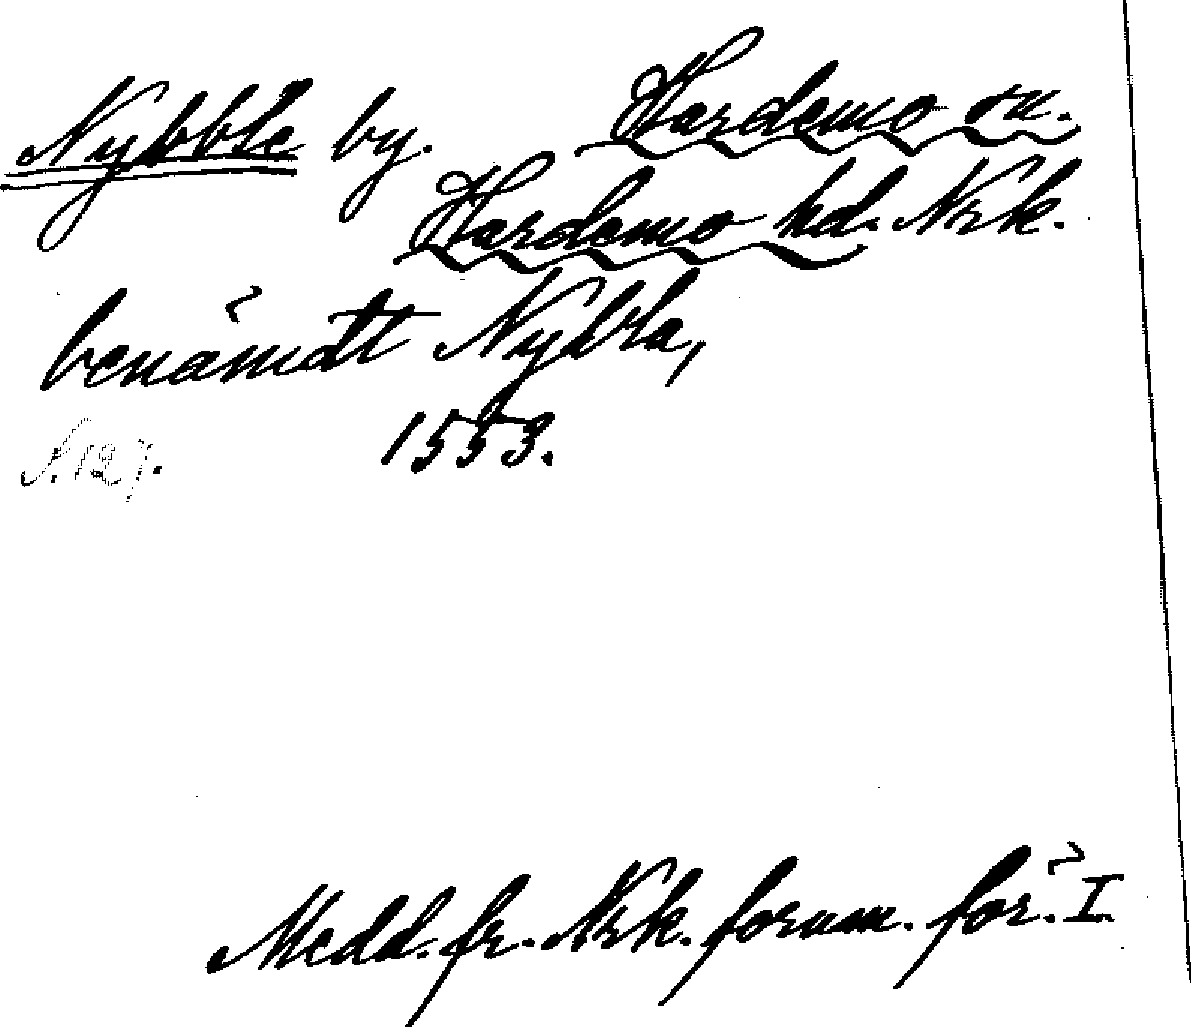 Nybble by. Hardemo sn.
Hardemo hd. Nrk.
benämdt Nybla,
1553.
S. 127.
Medd. fr. Nrk. fornm. för. I.